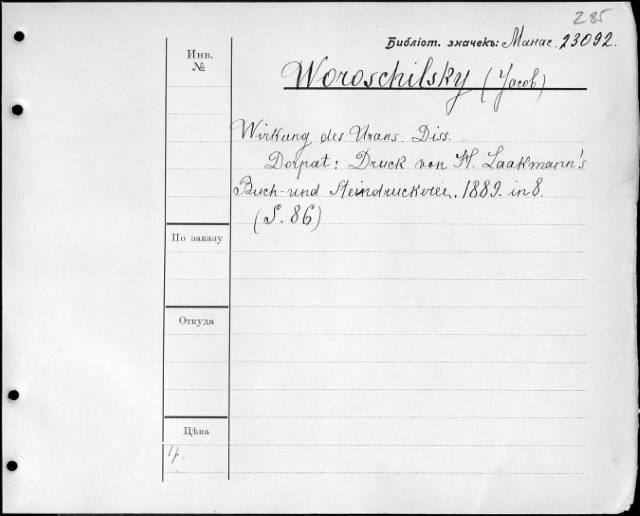 285
Библіот. значекъ: Манас. 23092.
Инв. №
Woroschilsky (Jacob)
Wirkung des Urans. Diss.
Dorpat: Druck von H. Laakmann's
Buch- und Steindruckerei. 1889. in 8.
(S. 86)
По заказу
Откуда
Цѣна